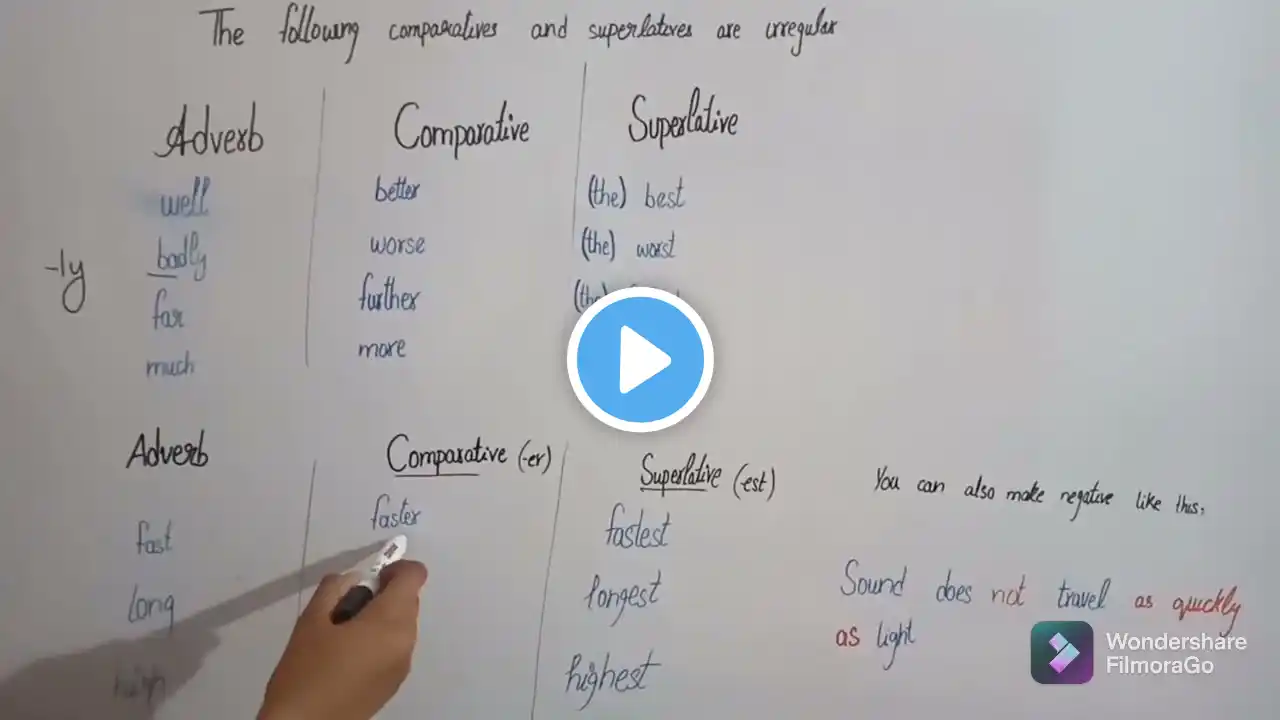 The following comparatives and superlatives are irregular
Adverb Comparative Superlative
well better (the) best
-ly badly worse (the) worst
far further (the)
much more
Adverb Comparative (-er) Superlative (-est)
fast faster fastest
long longest
high highest
You can also make negative like this:
Sound does not travel as quickly
as light
Wondershare
FilmoraGo